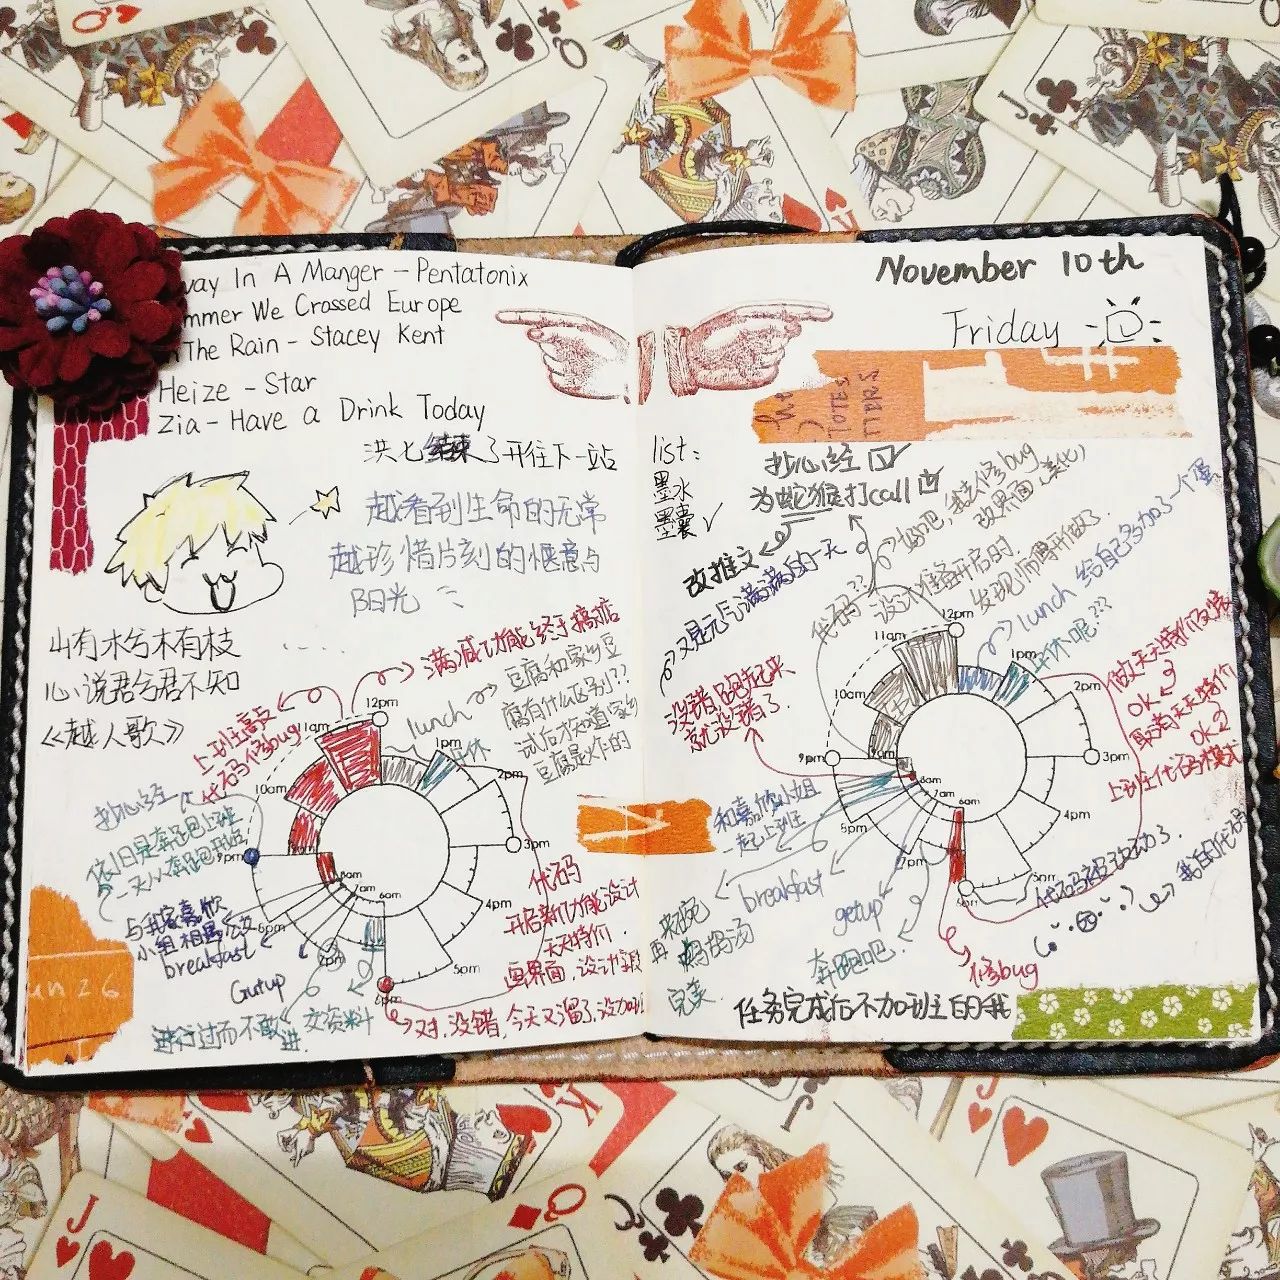 way In A Manger - Pentatonix
mmer We Crossed Europe
The Rain - Stacey Kent
Heize - Star
Zia - Have a Drink Today
洪七 了开往下一站
越看到生命的无常
越珍惜片刻的惬意与
阳光
山有木兮木有枝
心说君兮君不知
《越人歌》
满减功能终于搞掂
上班敲
代码修bug
lunch
豆腐和家乡豆
腐有什么区别??
试后才知道家乡
豆腐是炸的
午休
抄心经
依旧是奔跑上班
一天从奔跑开始
与我家嘉欣
小姐相遇
breakfast
Getup
进行过而不敢进.
交资料
代码
开启新功能设计
天天特价
画界面.设计字段
对,没错,今天又溜了,没加班
11am
12pm
1pm
2pm
3pm
4pm
5pm
6pm
7pm
8pm
9pm
10am
8am
7am
6am
un 26
November 10th
Friday
he
TOTES
list:
墨水
墨囊 ✓
抄心经
为蛇狼打call
改推文
又是元气满满的一天
好吧,我去修bug
改界面(美化)
代码??
设计准备开启时
发现师傅开做了.
lunch 给自己多加了一个蛋
午休呢???
没错,跑起来
就没错了.
做天天特价及家
OK
取消天天特价
OK2
上班代码模式
和嘉欣小姐
一起上班
breakfast
getup
奔跑吧.
再来碗
妈妈汤
完美
代码被改动了.
我的代码
修bug
任务完成后不加班的我
9pm
10am
11am
12pm
1pm
2pm
3pm
4pm
5pm
6pm
7pm
5pm
9am
8am
7am
6am
Q
J
A
J
K
J
Q
J